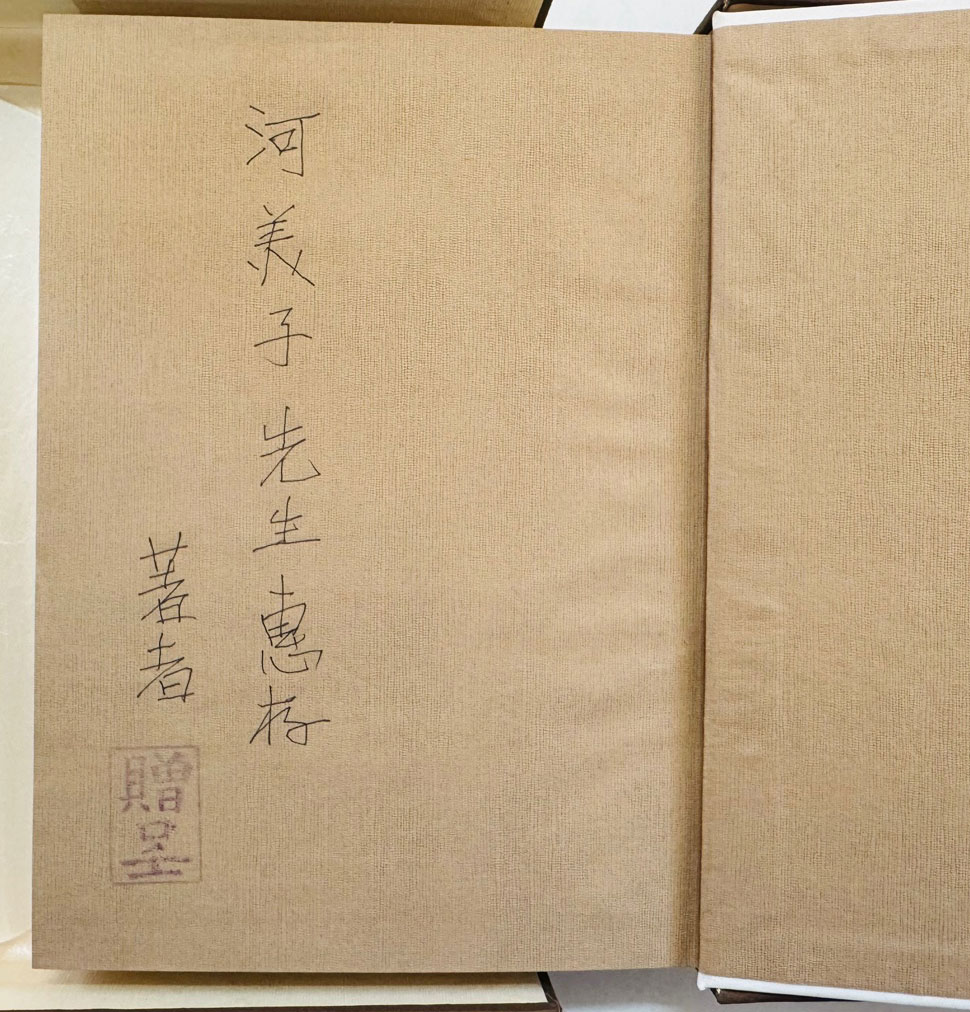 河美子先生惠存
著者
贈呈